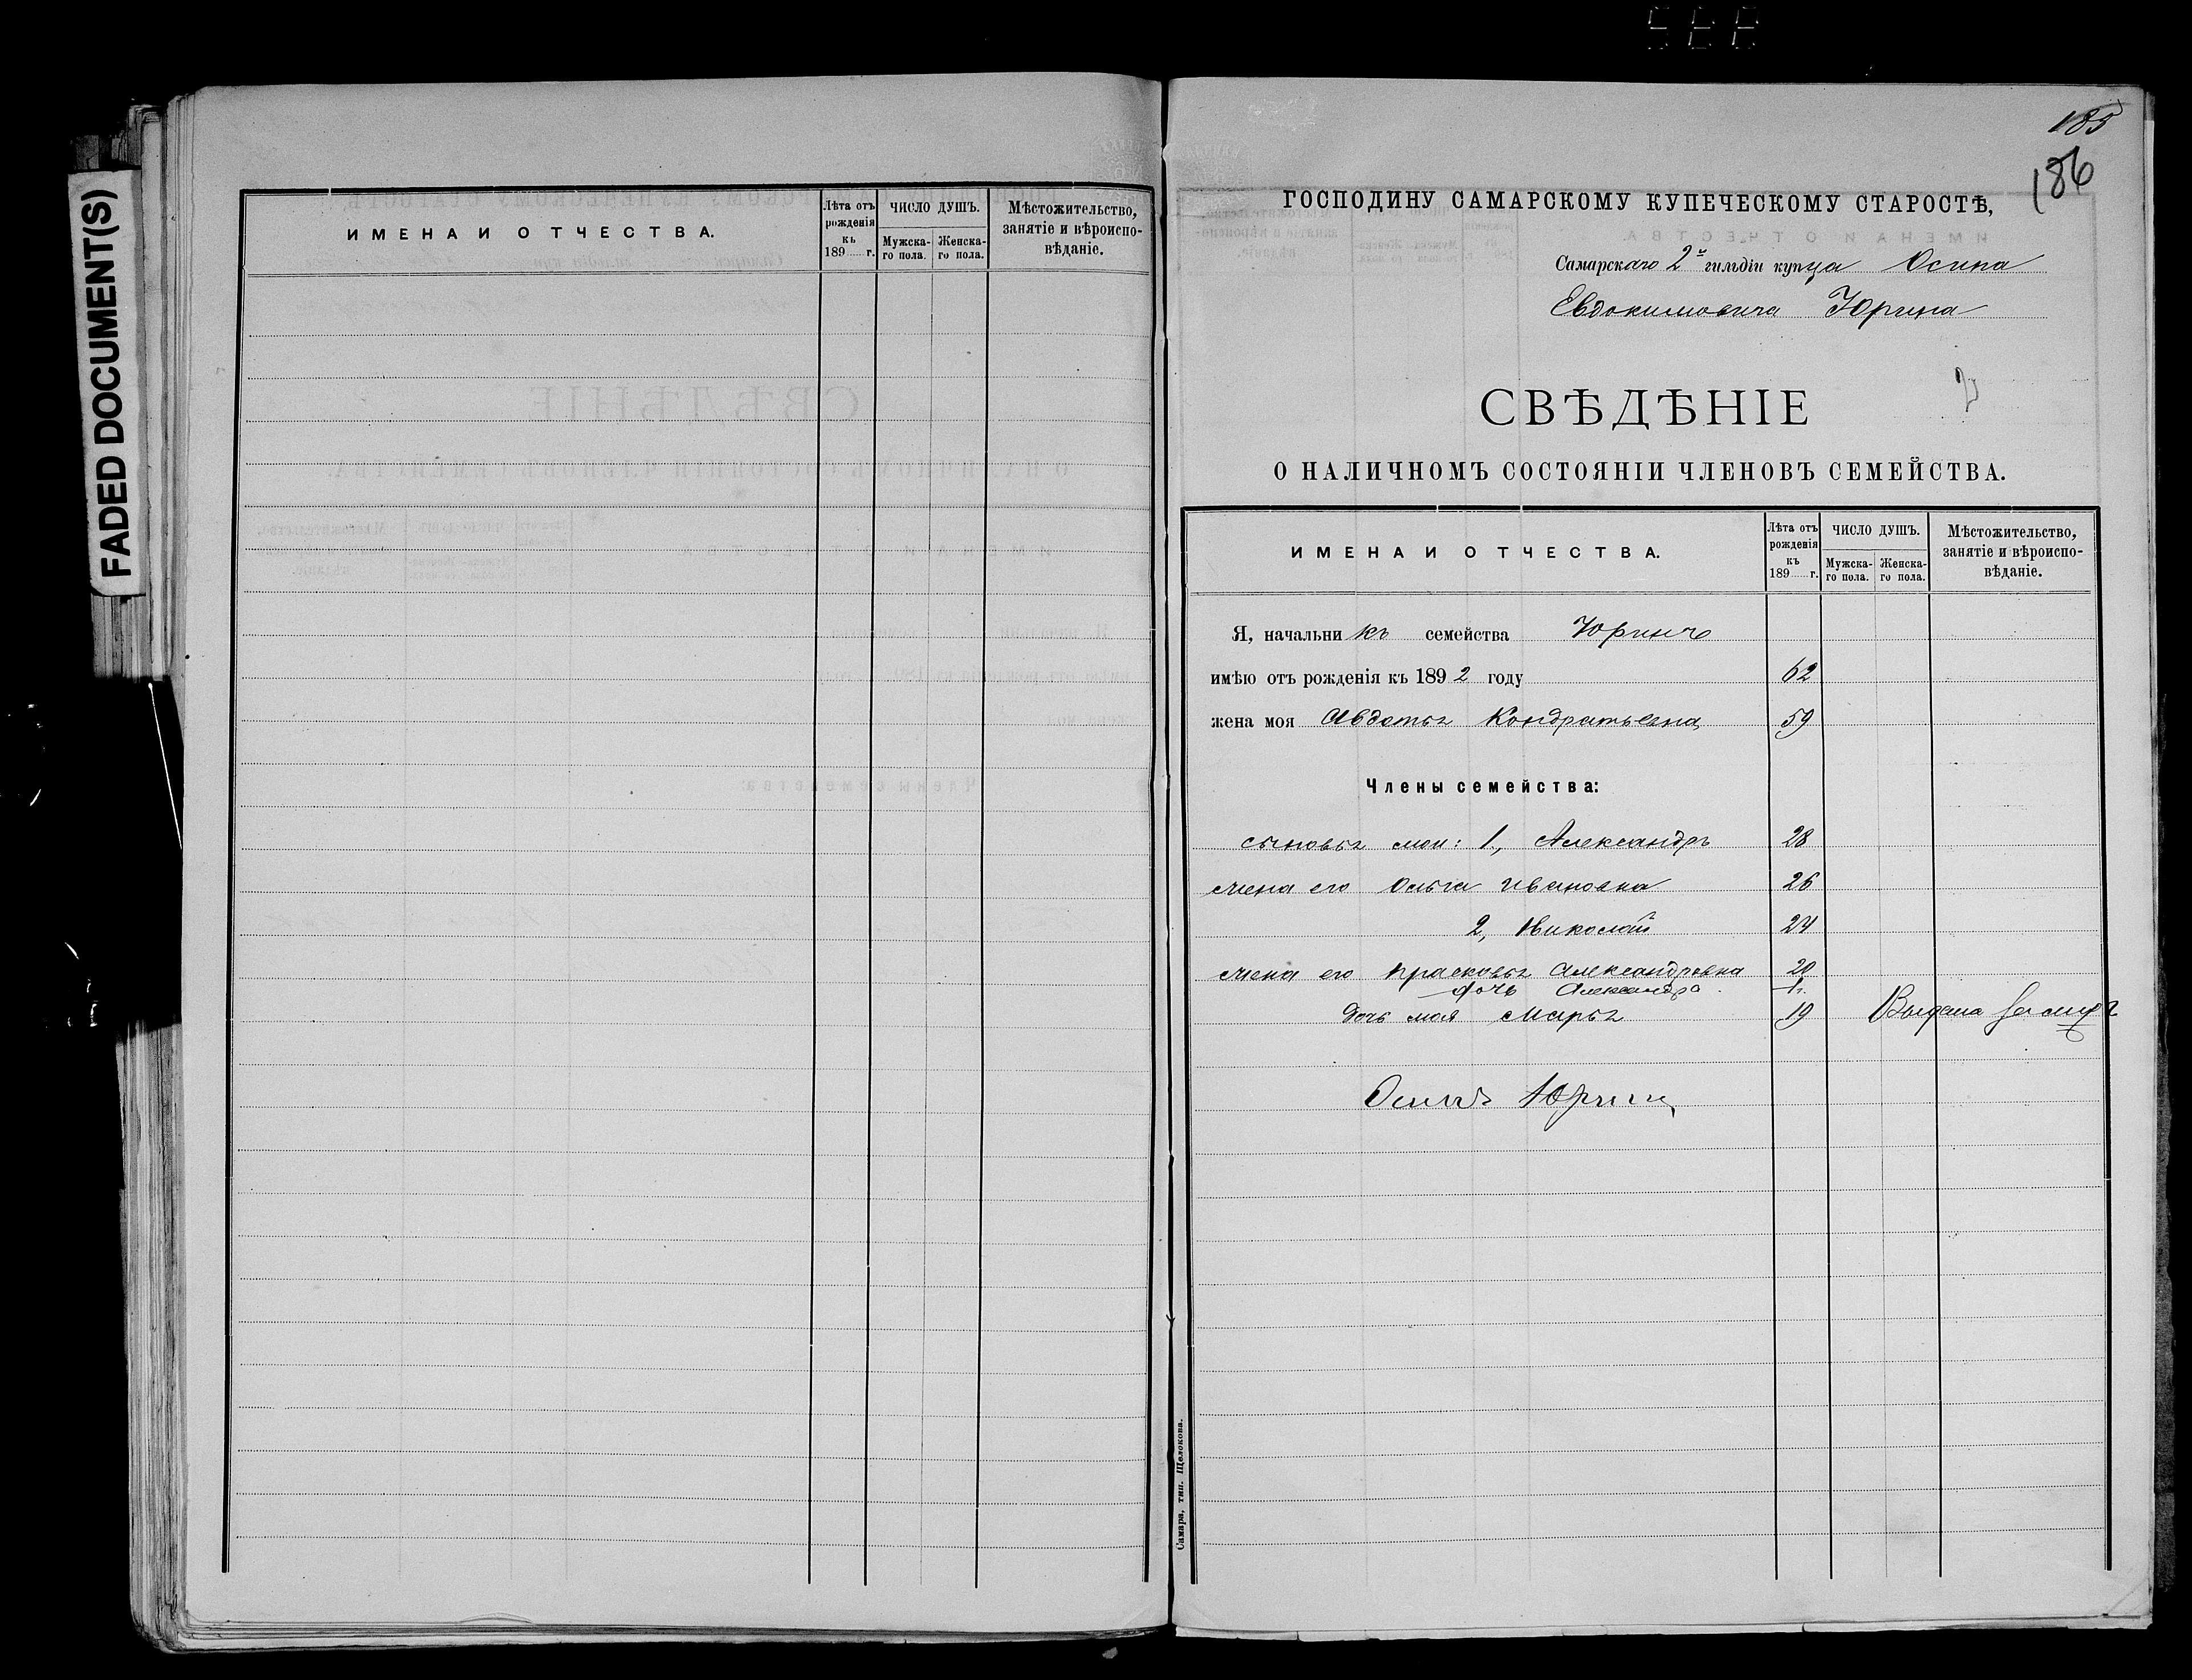 FADED DOCUMENT(S)
ИМЕНА И ОТЧЕСТВА.
Лѣта отъ рожденія къ 189 г.
ЧИСЛО ДУШЪ.
Мужска-го пола.
Женска-го пола.
Мѣстожительство, занятіе и вѣроиспо-вѣданіе.
185
186
ГОСПОДИНУ САМАРСКОМУ КУПЕЧЕСКОМУ СТАРОСТѢ,
Самарскаго 2й гильдіи купца Осипа
Евдокимовича Юрина
СВѢДѢНІЕ
О НАЛИЧНОМЪ СОСТОЯНІИ ЧЛЕНОВЪ СЕМЕЙСТВА.
ИМЕНА И ОТЧЕСТВА.
Лѣта отъ рожденія къ 189 г.
ЧИСЛО ДУШЪ.
Мужска-го пола.
Женска-го пола.
Мѣстожительство, занятіе и вѣроиспо-вѣданіе.
Я, начальникъ семейства Юринъ
имѣю отъ рожденія къ 1892 году 62
жена моя Авдотья Кондратьевна 59
Члены семейства:
сыновья мои: 1, Александръ 28
жена его Ольга Ивановна 26
2, Николай 24
жена его Прасковья Александровна 20
дочь Александра 1 г.
дочь моя Марья 19 Выдана замуж
Осипъ Юринъ
Самара, тип. Щелокова.